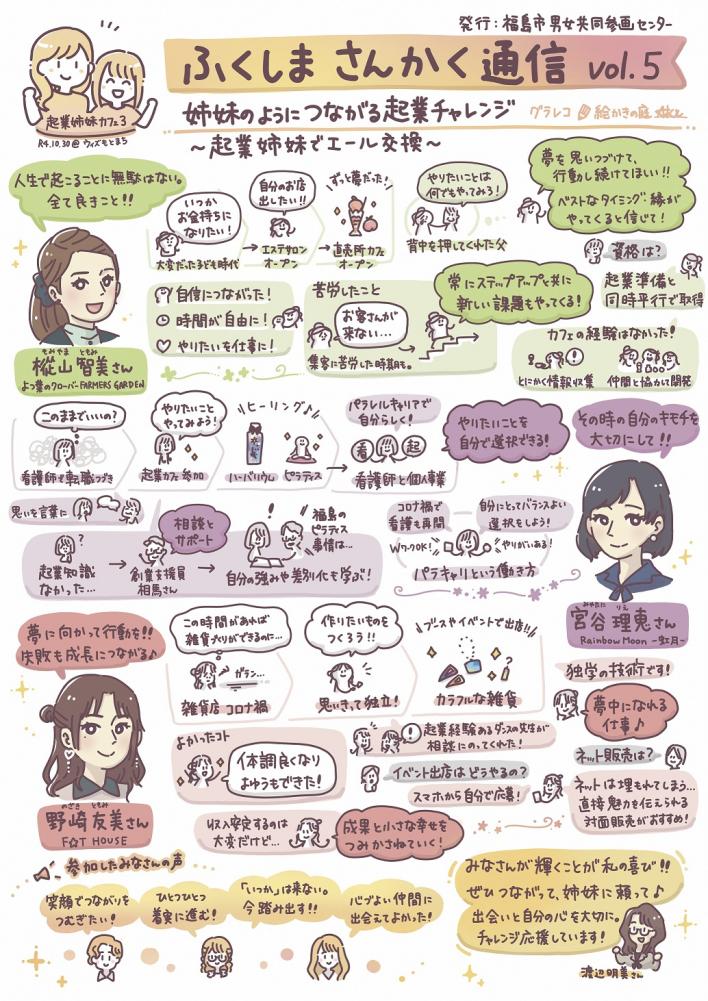 発行：福島市男女共同参画センター
ふくしま さんかく通信 vol.5
起業姉妹カフェ3
R4.10.30@ウィズもとまち
姉妹のようにつながる起業チャレンジ
グラレコ 絵かきの庭
～起業姉妹でエール交換～
人生で起こることに無駄はない。
全て良きこと!!
もみやま ともみ
樅山 智美さん
よつ葉のクローバーFARMERS GARDEN
いつか
お金持ちに
なりたい!
大変だった子ども時代
自分のお店
出したい!!
エステサロン
オープン
ずっと夢だった!
直売所カフェ
オープン
やりたいことは
何でもやってみろ!
背中を押してくれた父
夢を思いつづけて、
行動し続けてほしい!!
ベストなタイミング・縁が
やってくると信じて!
自信につながった!
時間が自由に!
やりたいを仕事に!
苦労したこと
お客さんが
来ない…
集客に苦労した時期も。
常にステップアップと共に
新しい課題もやってくる!
資格は?
起業準備と
同時平行で取得
カフェの経験はなかった!
とにかく情報収集
仲間と協力して開発
このままでいいの?
看護師で転職つづき
やりたいこと
やってみよう!
起業カフェ参加
ヒーリング♪
ハーバリウム ピラティス
パラレルキャリアで
自分らしく!
看 起
看護師と個人事業
やりたいことを
自分で選択できる!
その時の自分のキモチを
大切にして!!
みやたに りえ
宮谷 理恵さん
Rainbow Moon -虹月-
思いを言葉に
?
起業知識
なかった…
相談と
サポート
創業支援員
相馬さん
福島の
ピラティス
事情は…
自分の強みや差別化も学ぶ!
コロナ禍で
看護も再開
自分にとってバランスよい
選択をしよう!
WワークOK!
やりがいある!
パラキャリという働き方
夢に向かって行動を!!
失敗も成長につながる♪
のざき ともみ
野崎 友美さん
F☆T HOUSE
この時間があれば
雑貨づくりができるのに…
ガラン…
雑貨店 コロナ禍
作りたいものを
つくろう!!
思いきって独立!
ブースやイベントで出店!!
カラフルな雑貨
独学の技術です!
夢中になれる
仕事♪
よかったコト
体調良くなり
よゆうもできた!
起業経験あるダンスの先生が
相談にのってくれた!
イベント出店はどうやるの?
スマホから自分で応募!
ネット販売は?
ネットは埋もれてしまう…
直接魅力を伝えられる
対面販売がおすすめ!
収入安定するのは
大変だけど…
成果と小さな幸せを
つみかさねていく!
参加したみなさんの声
笑顔でつながりを
つむぎたい!
ひとつひとつ
着実に進む!
「いつか」は来ない。
今踏み出す!!
パワフルな仲間に
出会えてよかった!
みなさんが輝くことが私の喜び!!
ぜひつながって、姉妹に頼って♪
出会いと自分の心を大切に。
チャレンジ応援しています!
渡辺明美さん